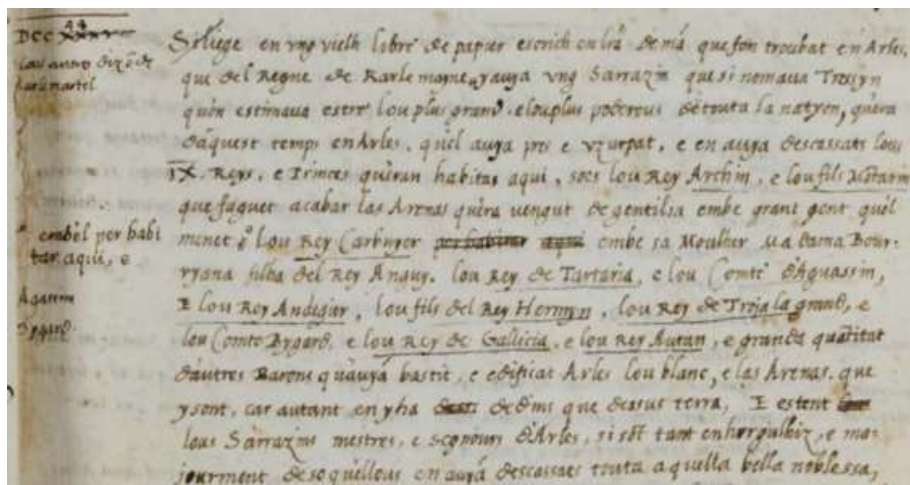 DCC
Si liege en vng vielh libre de papier escrich en lra de mã que fon troubat en Arles,
que del Regne de Karle mayne, yauya vng Sarrazin que si nomaua Tressyn
qu'on estimaua estre lou plus grand, e lou plus poderous de touta la natyon, qu'era
d'aquest temps en Arles, qu'el auya pres e vzurpat, e en auya descassats lous
IX. Reys, e Princes qu'eran habitas aqui, soes lou Rey Archin, e lou fils
que faguet acabar las Arenas qu'era vengut de gentilia embe grant gent qu'el
menet lou Rey Carbuyer per habitar aqui embe sa Moulher Madama Bour-
ryana filha del Rey Anauy. lou Rey de Tartaria, e lou Comte d'Aguassin,
E lou Rey Andegier, lou fils del Rey Hermyn, lou Rey de Troja la grand, e
lou Comte Bygard, e lou Rey de Gallicia, e lou Rey Autan, e granda quãtitat
d'autres Barons qu'auyã bastit, e edificat Arles lou blanc, e las Arenas, que
y sont, car autant en yha dedins que desus terra, E estent
lous Sarrazins mestres, e segnours d'Arles, si sõt tant enhorgulhiz, e ma-
jourment desoquellous en auyã descassaes touta aquella bella noblessa,
embel per habi
tar aqui, e
Agassin
Bygard